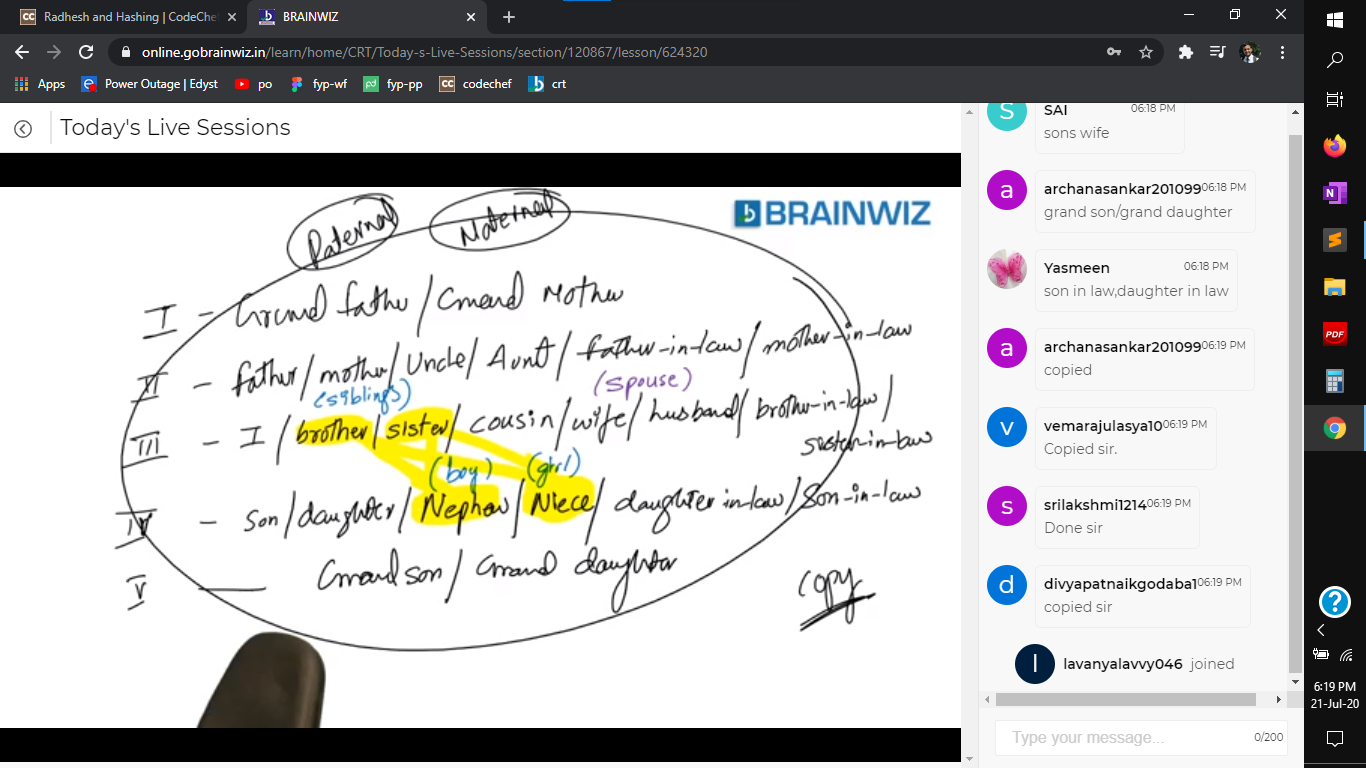 Radhesh and Hashing | CodeChe
BRAINWIZ
online.gobrainwiz.in/learn/home/CRT/Today-s-Live-Sessions/section/120867/lesson/624320
Apps
Power Outage | Edyst
po
fyp-wf
fyp-pp
codechef
crt
Today's Live Sessions
Paternal
Maternal
BRAINWIZ
I - Grand father / Grand Mother
II - father / mother / Uncle / Aunt / father-in-law / mother-in-law
(siblings)
(spouse)
III - I / brother / sister / cousin / wife / husband / brother-in-law /
sister-in-law
(boy) (girl)
IV - son / daughter / Nephew / Niece / daughter in-law / Son-in-law
V — Grand son / Grand daughter
copy
S
SAI 06:18 PM
sons wife
a
archanasankar201099 06:18 PM
grand son/grand daughter
Yasmeen 06:18 PM
son in law,daughter in law
a
archanasankar201099 06:19 PM
copied
v
vemarajulasya10 06:19 PM
Copied sir.
s
srilakshmi1214 06:19 PM
Done sir
d
divyapatnaikgodaba1 06:19 PM
copied sir
l
lavanyalavvy046 joined
Type your message...
0/200
PDF
6:19 PM
21-Jul-20